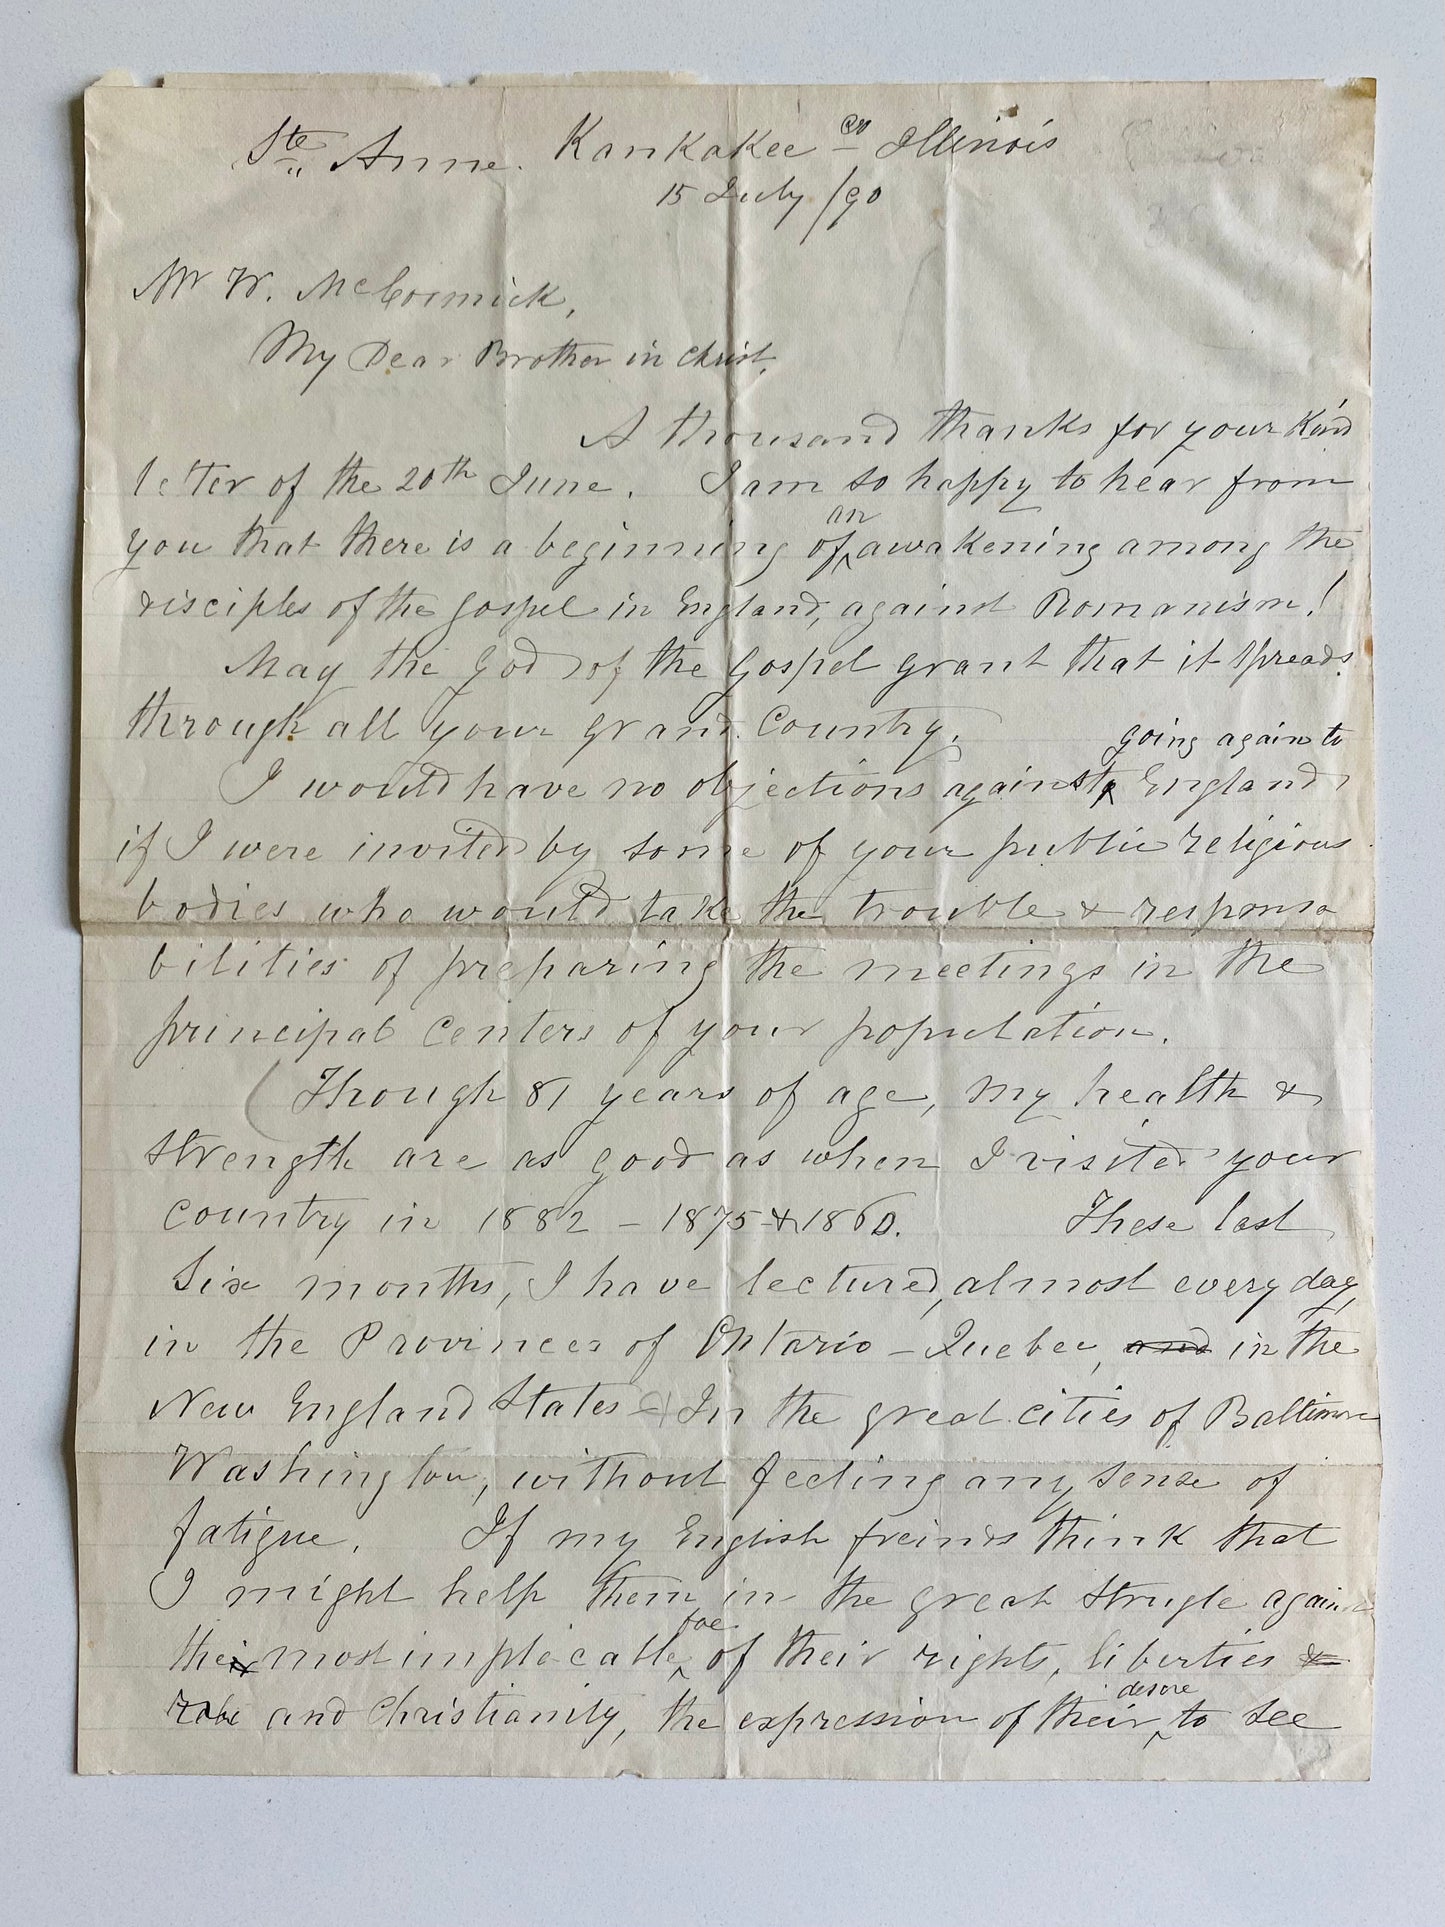 Ste Anne. Kankakee Co Illinois
15 July /90
Mr W. McCormick,
My Dear Brother in Christ,
A thousand thanks for your kind
letter of the 20th June. I am so happy to hear from
you that there is a beginning of an awakening among the
disciples of the gospel in England, against Romanism!
May the God of the Gospel grant that it spreads
through all your grand Country.
I would have no objections against going again to England,
if I were invited by some of your public religious
bodies who would take the trouble & responsa
bilities of preparing the meetings in the
principal Centers of your population.
Though 81 years of age, my health &
strength are as good as when I visited your
country in 1882 - 1875 & 1860. These last
Six months, I have lectured, almost every day,
in the Provinces of Ontario - Quebec, and in the
New England States & In the great cities of Baltimore
Washington, without feeling any sense of
fatigue. If my English freinds think that
I might help them in the great strugle against
their most implacable foe of their rights, liberties &
and Christianity, the expression of their desire to see